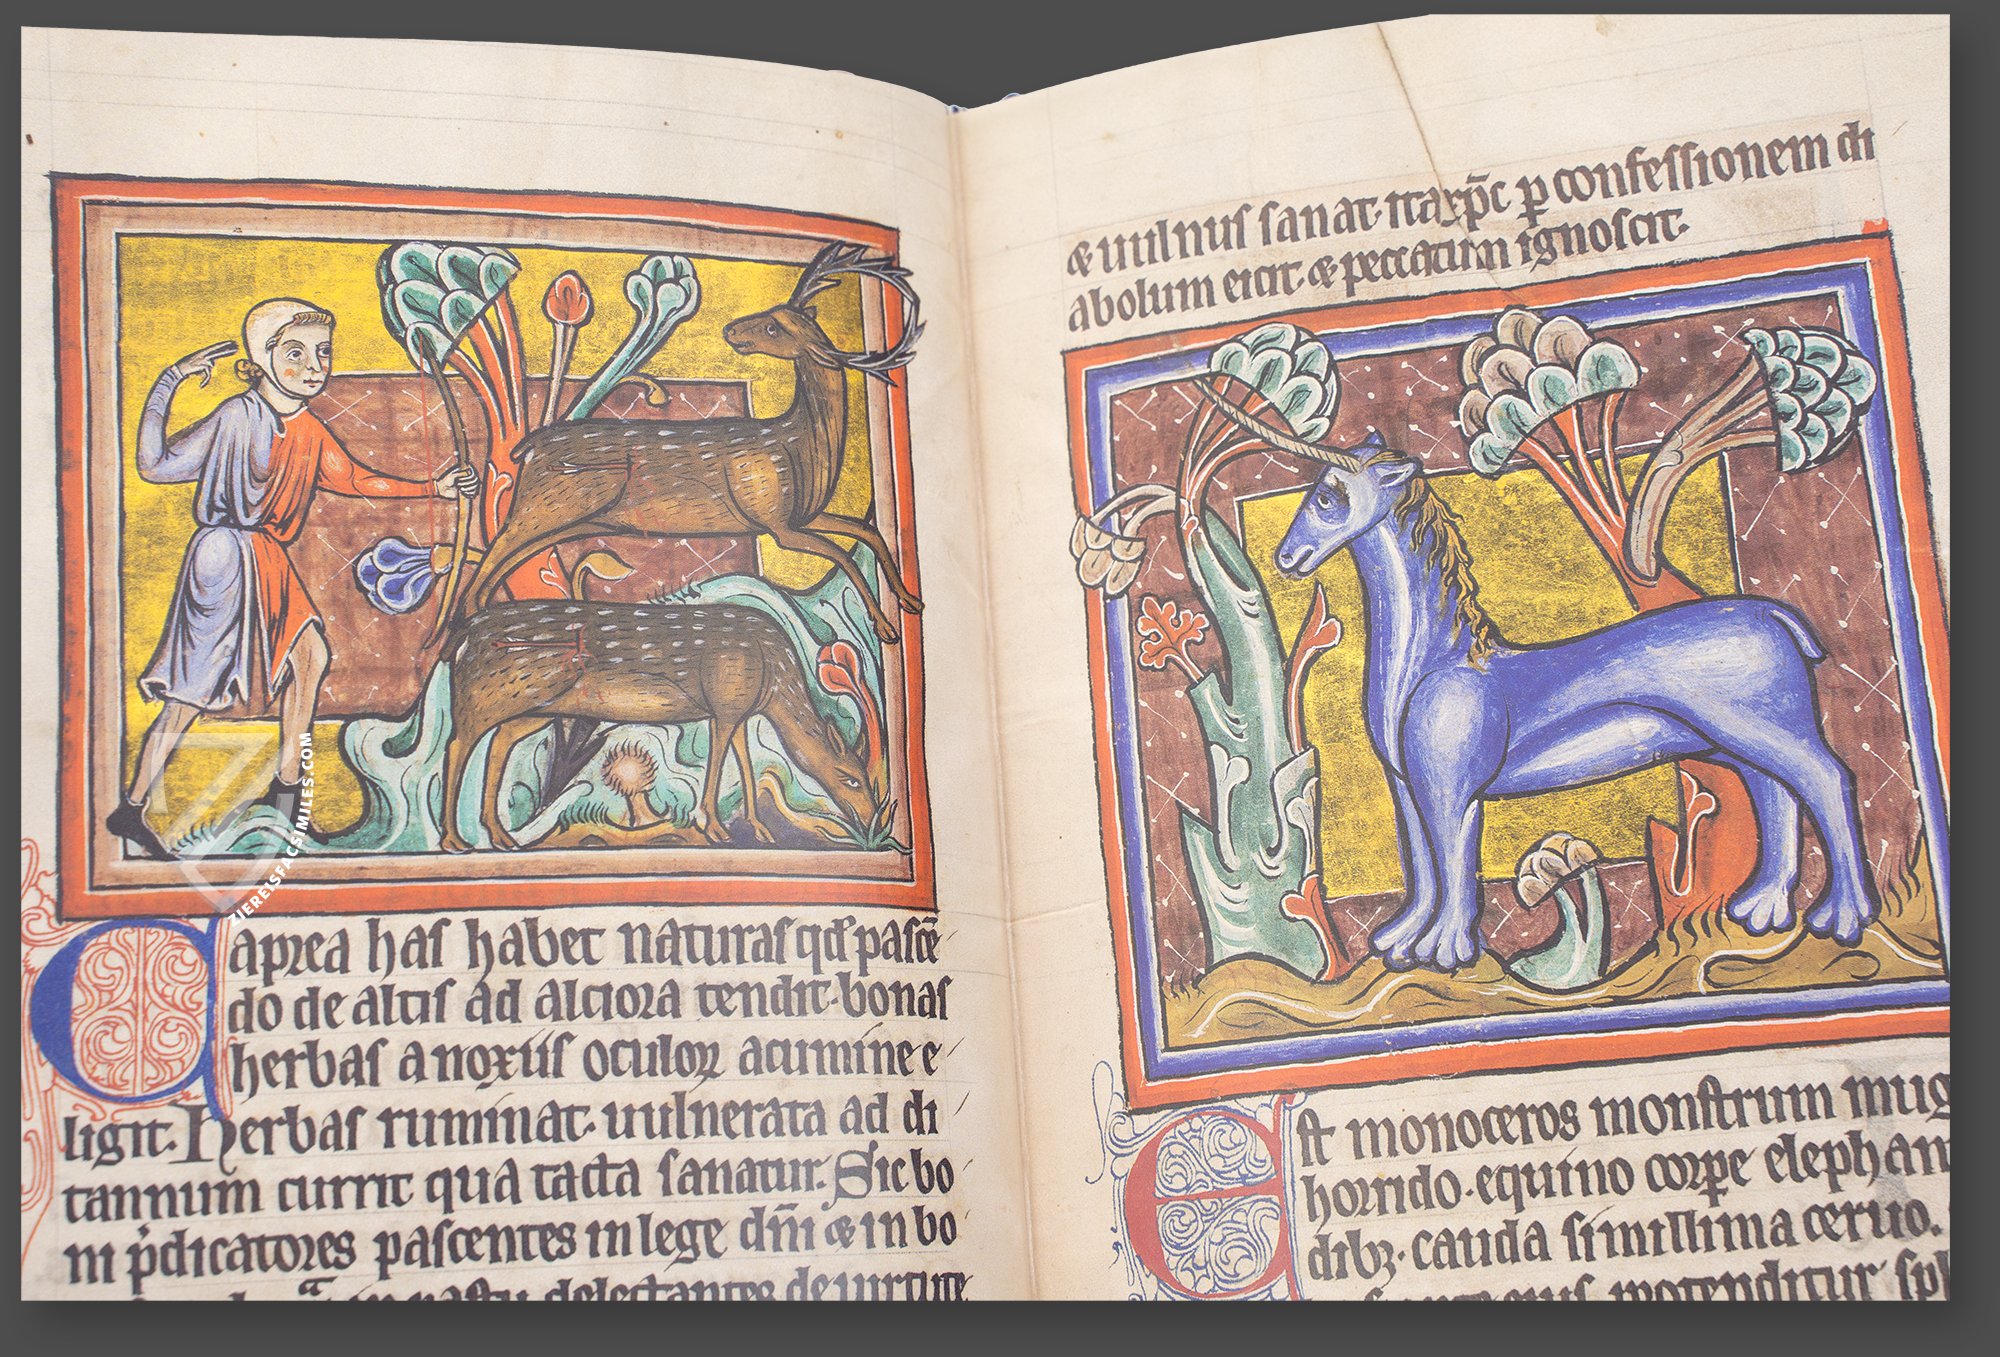 Caprea has habet naturas qđ pascē
do de altis ad altiora tendit. bonas
herbas a noxiis oculoꝝ acumine e
ligit. Herbas ruminat. uulnerata ad di
tannum currit qua tacta sanatur. Sic bo
ni p̄dicatores pascentes in lege dn̄i & in bo
delectantes de uirtute
& uulnus sanat. ita xp̄c ꝑ confessionem di
abolum eicit. & peccatum ignoscit.
Est monoceros monstrum mug
horrido. equino corpe elephan
dibꝫ. cauda simillima ceruo.
protenditur spl
ZIEREISFACSIMILES.COM